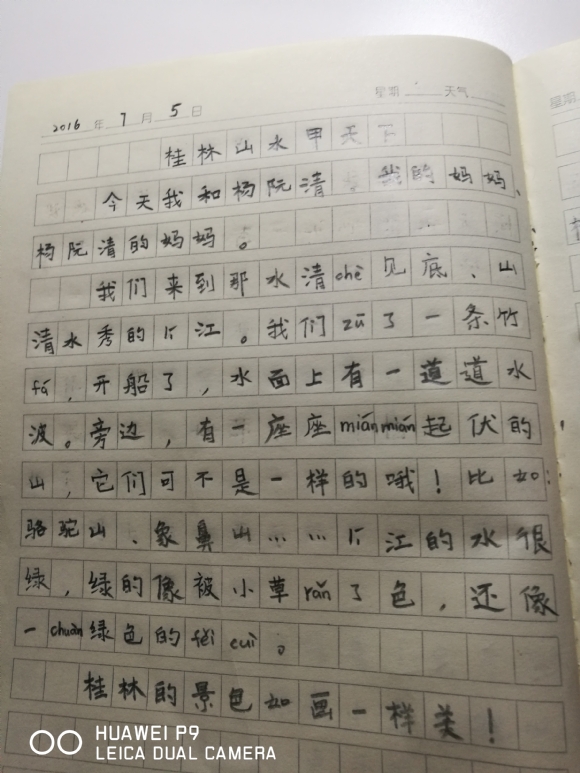 星期 天气
2016年7月5日
桂林山水甲天下
今天我和杨阮清、我的妈妈、
杨阮清的妈妈。
我们来到那水清chè见底、山
清水秀的江。我们zū了一条竹
fá,开船了,水面上有一道道水
波。旁边,有一座座miánmián起伏的
山,它们可不是一样的哦!比如:
骆驼山、象鼻山……江的水很
绿,绿的像被小草rǎn了色,还像
一chuàn绿色的fěi cuì。
桂林的景色如画一样美!
星期
HUAWEI P9
LEICA DUAL CAMERA